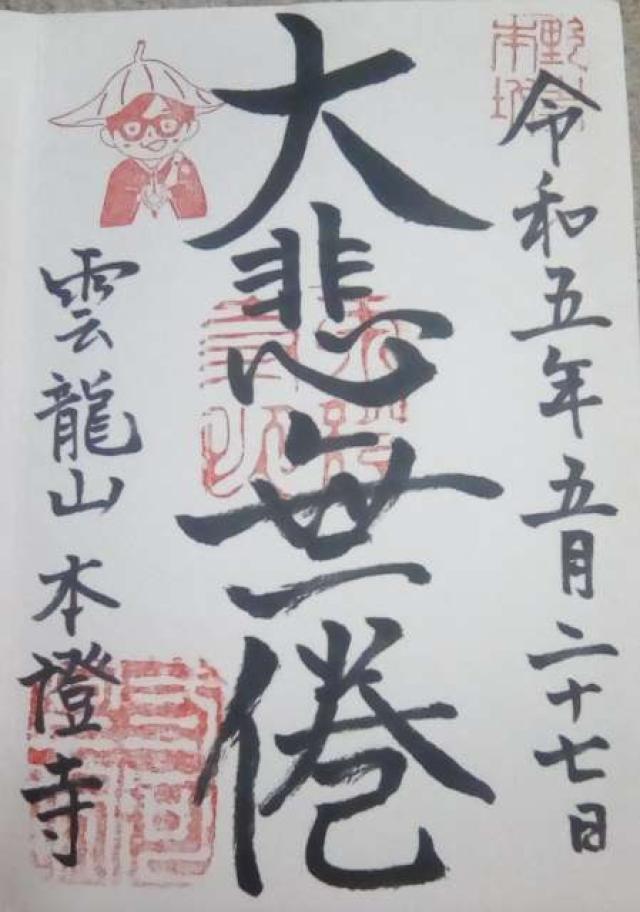 令和五年五月二十七日
大悲無倦
雲龍山 本證寺